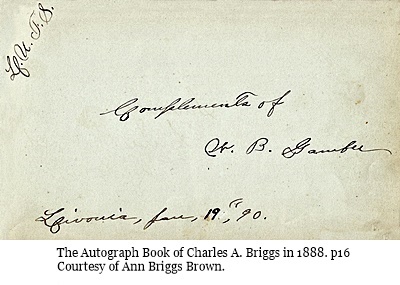 L. U. T. S.
Complements of
W. B. Gamble
Livonia, Jan, 19", 90.
The Autograph Book of Charles A. Briggs in 1888. p16
Courtesy of Ann Briggs Brown.